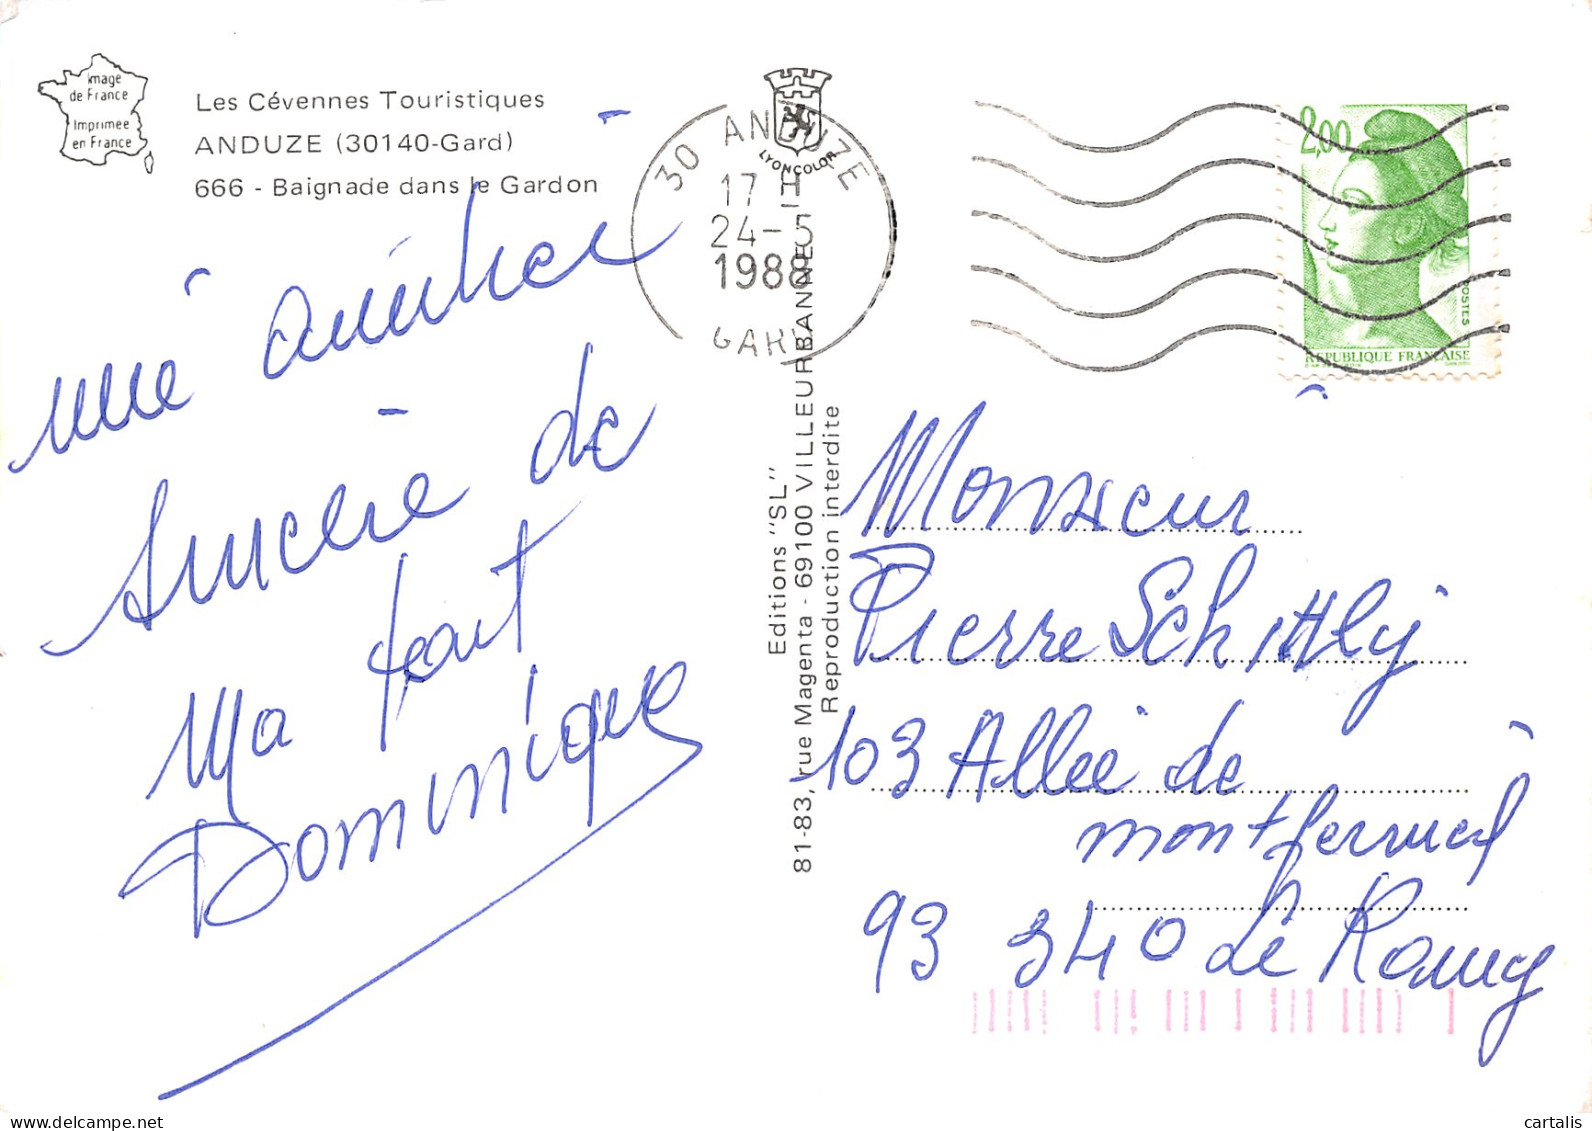 Image
de France
Imprimée
en France
Les Cévennes Touristiques
ANDUZE (30140-Gard)
666 - Baignade dans le Gardon
une amitié
sincère de
ma part
Dominique
LYONCOLOR
Editions "SL"
81-83, rue Magenta - 69100 VILLEURBANNE
Reproduction interdite
30 ANDUZE
17 H
24-5
1988
GARD
2,00
POSTES
REPUBLIQUE FRANÇAISE
Monsieur
Pierre Schittly
103 Allée de
montfermeil
93 340 Le Raincy
cartalis